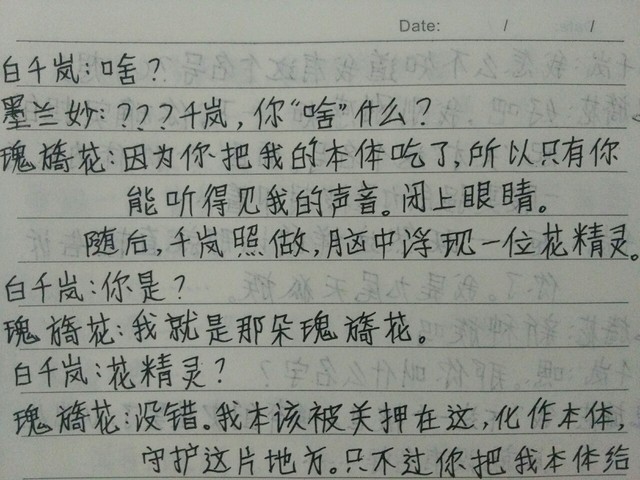 Date: / /
白千岚:啥?
墨兰妙:???千岚,你“啥”什么?
瑰旖花:因为你把我的本体吃了,所以只有你
能听得见我的声音。闭上眼睛。
随后,千岚照做,脑中浮现一位花精灵。
白千岚:你是?
瑰旖花:我就是那朵瑰旖花。
白千岚:花精灵?
瑰旖花:没错。我本该被关押在这,化作本体,
守护这片地方。只不过你把我本体给